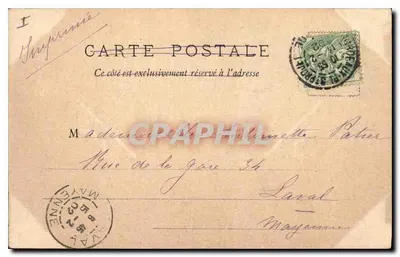 I
Imprimé
CARTE POSTALE
Ce côté est exclusivement réservé à l'adresse
CPARAMA
Mademoiselle
Rue de la gare 34
Laval
Mayenne
LAVAL
MAYENNE